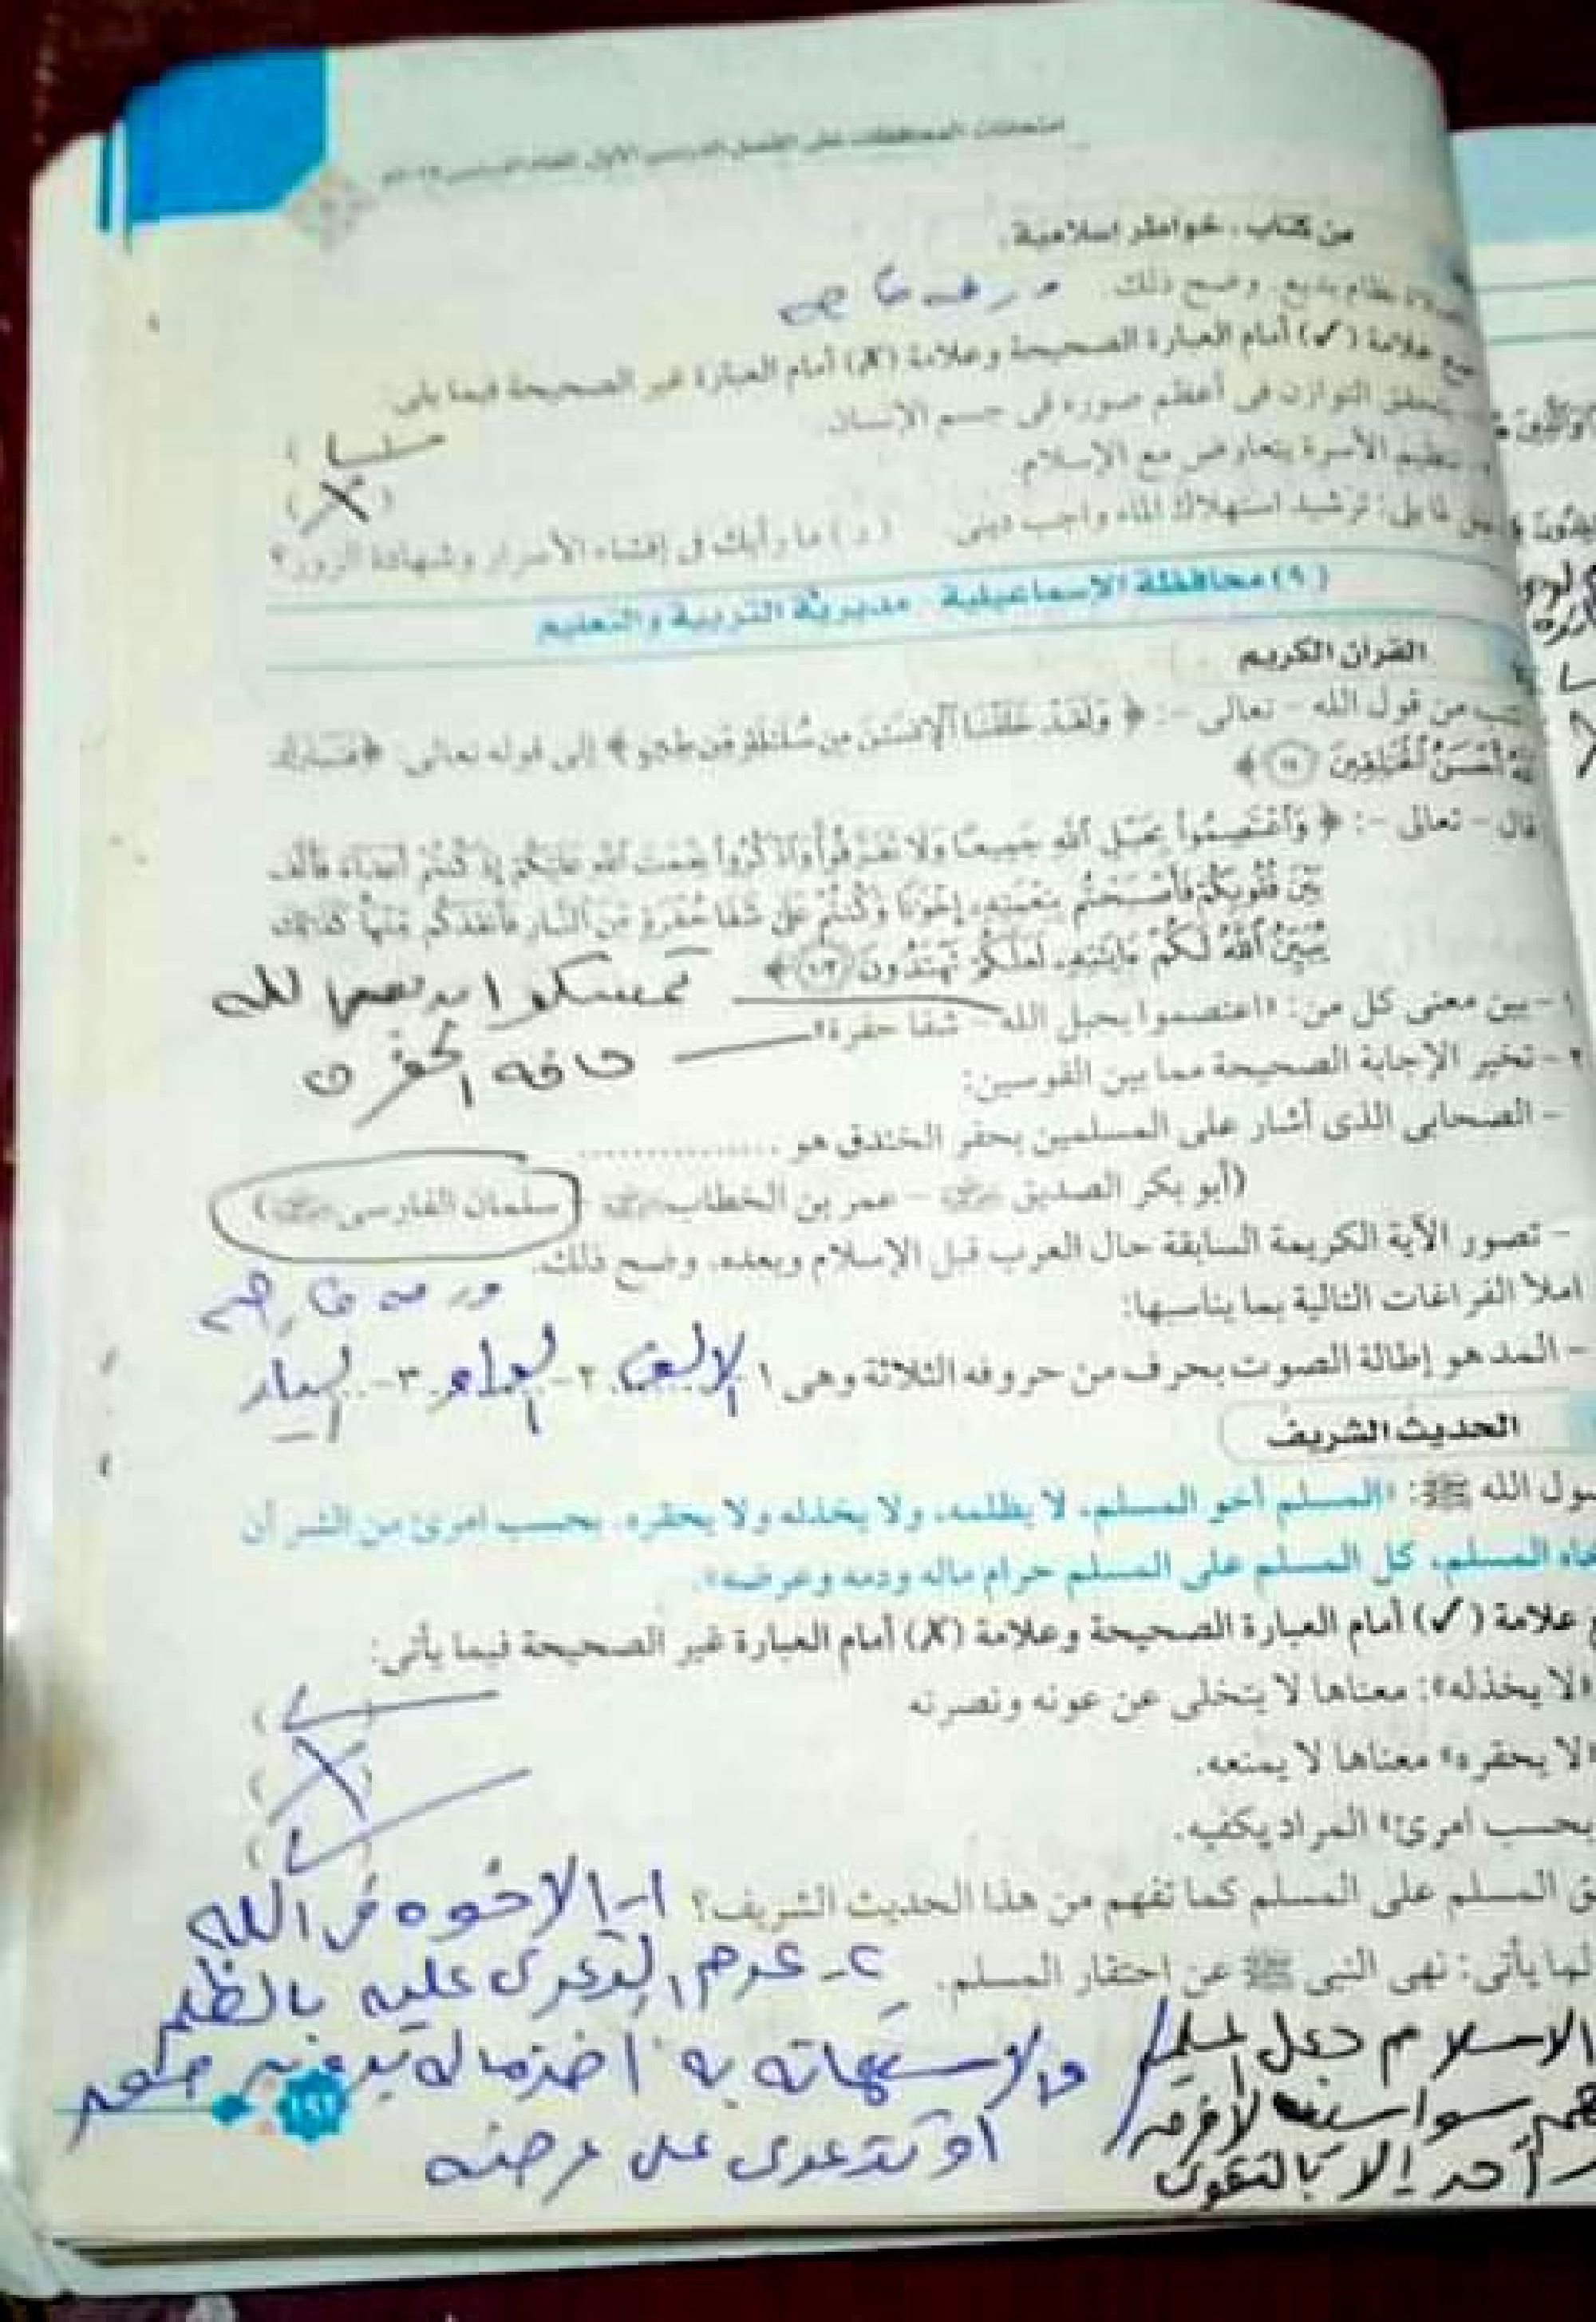 امتحانات المحافظات على الفصل الدراسى الأول للعام الدراسى
من كتاب: خواطر إسلامية
نظام بديع. وضح ذلك. ورقة خارجية
علامة (✓) أمام العبارة الصحيحة وعلامة (✗) أمام العبارة غير الصحيحة فيما يلى:
يتحقق التوازن فى أعظم صوره فى جسم الإنسان. (✓)
تنظيم الأسرة يتعارض مع الإسلام. (✗)
لما يلى: ترشيد استهلاك الماء واجب دينى. (د) ما رأيك فى إفشاء الأسرار وشهادة الزور؟
(٩) محافظة الإسماعيلية - مديرية التربية والتعليم
القرآن الكريم
من قول الله - تعالى -: ﴿ وَلَقَدْ خَلَقْنَا ٱلْإِنسَٰنَ مِن سُلَٰلَةٍ مِّن طِينٍ ﴾ إلى قوله تعالى: ﴿ فَتَبَارَكَ
ٱللَّهُ أَحْسَنُ ٱلْخَٰلِقِينَ (١٤) ﴾
قال - تعالى -: ﴿ وَٱعْتَصِمُوا۟ بِحَبْلِ ٱللَّهِ جَمِيعًا وَلَا تَفَرَّقُوا۟ وَٱذْكُرُوا۟ نِعْمَتَ ٱللَّهِ عَلَيْكُمْ إِذْ كُنتُمْ أَعْدَآءً فَأَلَّفَ
بَيْنَ قُلُوبِكُمْ فَأَصْبَحْتُم بِنِعْمَتِهِۦٓ إِخْوَٰنًا وَكُنتُمْ عَلَىٰ شَفَا حُفْرَةٍ مِّنَ ٱلنَّارِ فَأَنقَذَكُم مِّنْهَا كَذَٰلِكَ
يُبَيِّنُ ٱللَّهُ لَكُمْ ءَايَٰتِهِۦ لَعَلَّكُمْ تَهْتَدُونَ (١٠٣) ﴾
١- بين معنى كل من: «اعتصموا بحبل الله - شفا حفرة» تمسكوا لله
حافه الحفرة
٢- تخير الإجابة الصحيحة مما بين القوسين:
- الصحابى الذى أشار على المسلمين بحفر الخندق هو ..............
(أبو بكر الصديق - عمر بن الخطاب - سلمان الفارسى)
- تصور الآية الكريمة السابقة حال العرب قبل الإسلام وبعده. وضح ذلك.
ورقة خارجية
املأ الفراغات التالية بما يناسبها:
- المد هو إطالة الصوت بحرف من حروفه الثلاثة وهى ١- الالف ٢- الواو ٣- الياء
الحديث الشريف
رسول الله ﷺ: «المسلم أخو المسلم، لا يظلمه، ولا يخذله ولا يحقره. بحسب امرئ من الشر أن
أخاه المسلم، كل المسلم على المسلم حرام ماله ودمه وعرضه».
علامة (✓) أمام العبارة الصحيحة وعلامة (✗) أمام العبارة غير الصحيحة فيما يأتى:
«لا يخذله»: معناها لا يتخلى عن عونه ونصرته (✓)
«لا يحقره» معناها لا يمنعه. (✗)
بحسب امرئ» المراد يكفيه. (✓)
المسلم على المسلم كما تفهم من هذا الحديث الشريف؟ ١- الاخوه فى الله
لما يأتى: نهى النبى ﷺ عن احتقار المسلم. ٢- عدم التعدى عليه بالظلم
الاسلام جعل المسلم
والاستهانه به اخذ ماله بدون
سواسية لا فرق
او تتعدى على عرضه
أحد إلا بالتقوى